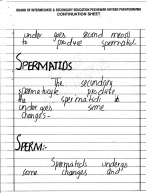 BOARD OF INTERMEDIATE & SECONDARY EDUCATION PESHAWAR KHYBER PAKHTUNKHWA
CONTINUATION SHEET
under goes second meiosis
to produce spermatids.
SPERMATIDS
The secondary
spermatocyte produce
the spermatids it
under goes some
changes:-
SPERM:-
Spermatids undergo
some changes and